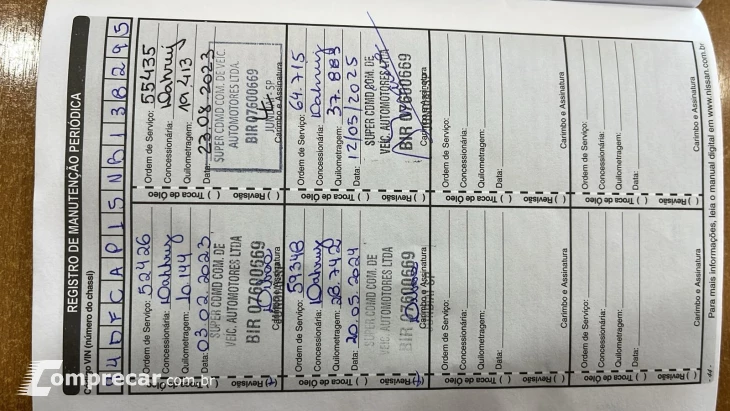 REGISTRO DE MANUTENÇÃO PERIÓDICA
VIN (número do chassi)
94DFCAP15NB138295
Revisão ( ) Troca de Óleo ( )
Ordem de Serviço: 52426
Concessionária: Dahruj
Quilometragem: 10.144
Data: 03.02.2023
SUPER CDMD COM. DE
VEIC. AUTOMOTORES LTDA
BIR 07600669
Carimbo e Assinatura
Revisão ( ) Troca de Óleo ( )
Ordem de Serviço: 55435
Concessionária: Dahruj
Quilometragem: 19.413
Data: 23.08.2023
SUPER CDMD COM. DE VEIC.
AUTOMOTORES LTDA.
BIR 07600669
JUNDIAÍ - SP
Carimbo e Assinatura
Revisão ( ) Troca de Óleo ( )
Ordem de Serviço: 59348
Concessionária: Dahruj
Quilometragem: 28.742
Data: 20.05.2024
SUPER CDMD COM. DE
VEIC. AUTOMOTORES LTDA
BIR 07600669
Carimbo e Assinatura
Revisão ( ) Troca de Óleo ( )
Ordem de Serviço: 64.715
Concessionária: Dahruj
Quilometragem: 37.883
Data: 12/05/2025
SUPER CDMD COM. DE
VEIC. AUTOMOTORES LTDA
BIR 07600669
Carimbo e Assinatura
Revisão ( ) Troca de Óleo ( )
Ordem de Serviço:
Concessionária:
Quilometragem:
Data:
Carimbo e Assinatura
Revisão ( ) Troca de Óleo ( )
Ordem de Serviço:
Concessionária:
Quilometragem:
Data:
Carimbo e Assinatura
Revisão ( ) Troca de Óleo ( )
Ordem de Serviço:
Concessionária:
Quilometragem:
Data:
Carimbo e Assinatura
Revisão ( ) Troca de Óleo ( )
Ordem de Serviço:
Concessionária:
Quilometragem:
Data:
Carimbo e Assinatura
Para mais informações, leia o manual digital em www.nissan.com.br
-11-
Comprecar.com.br